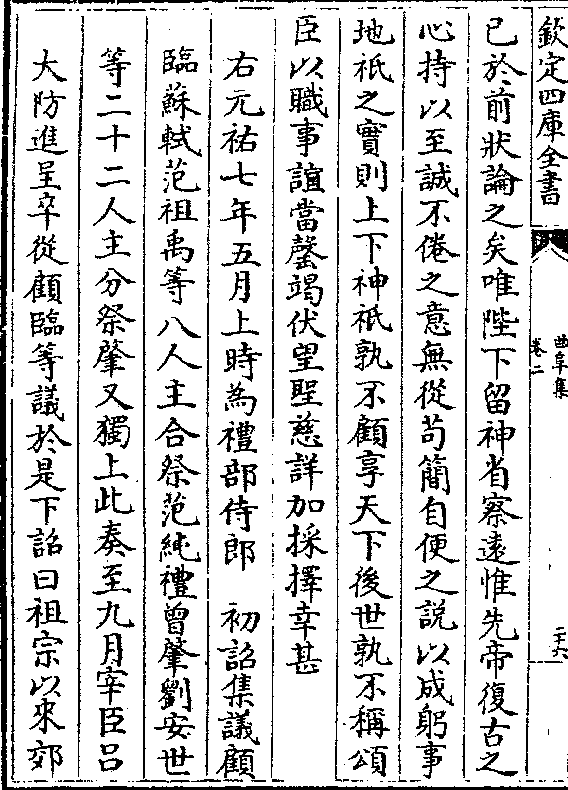 欽定四庫全書
曲阜集
卷二
二十六
已於前狀論之矣唯陛下留神省察遠惟先帝復古之
心持以至誠不倦之意無從苟簡自便之説以成躬事
地祇之實則上下神祇孰不顧享天下後世孰不稱頌
臣以職事誼當罄竭伏望聖慈詳加採擇幸甚
右元祐七年五月上時為禮部侍郎　初詔集議顧
臨蘇軾范祖禹等八人主合祭范純禮曾肇劉安世
等二十二人主分祭肇又獨上此奏至九月宰臣吕
大防進呈卒從顧臨等議於是下詔曰祖宗以來郊